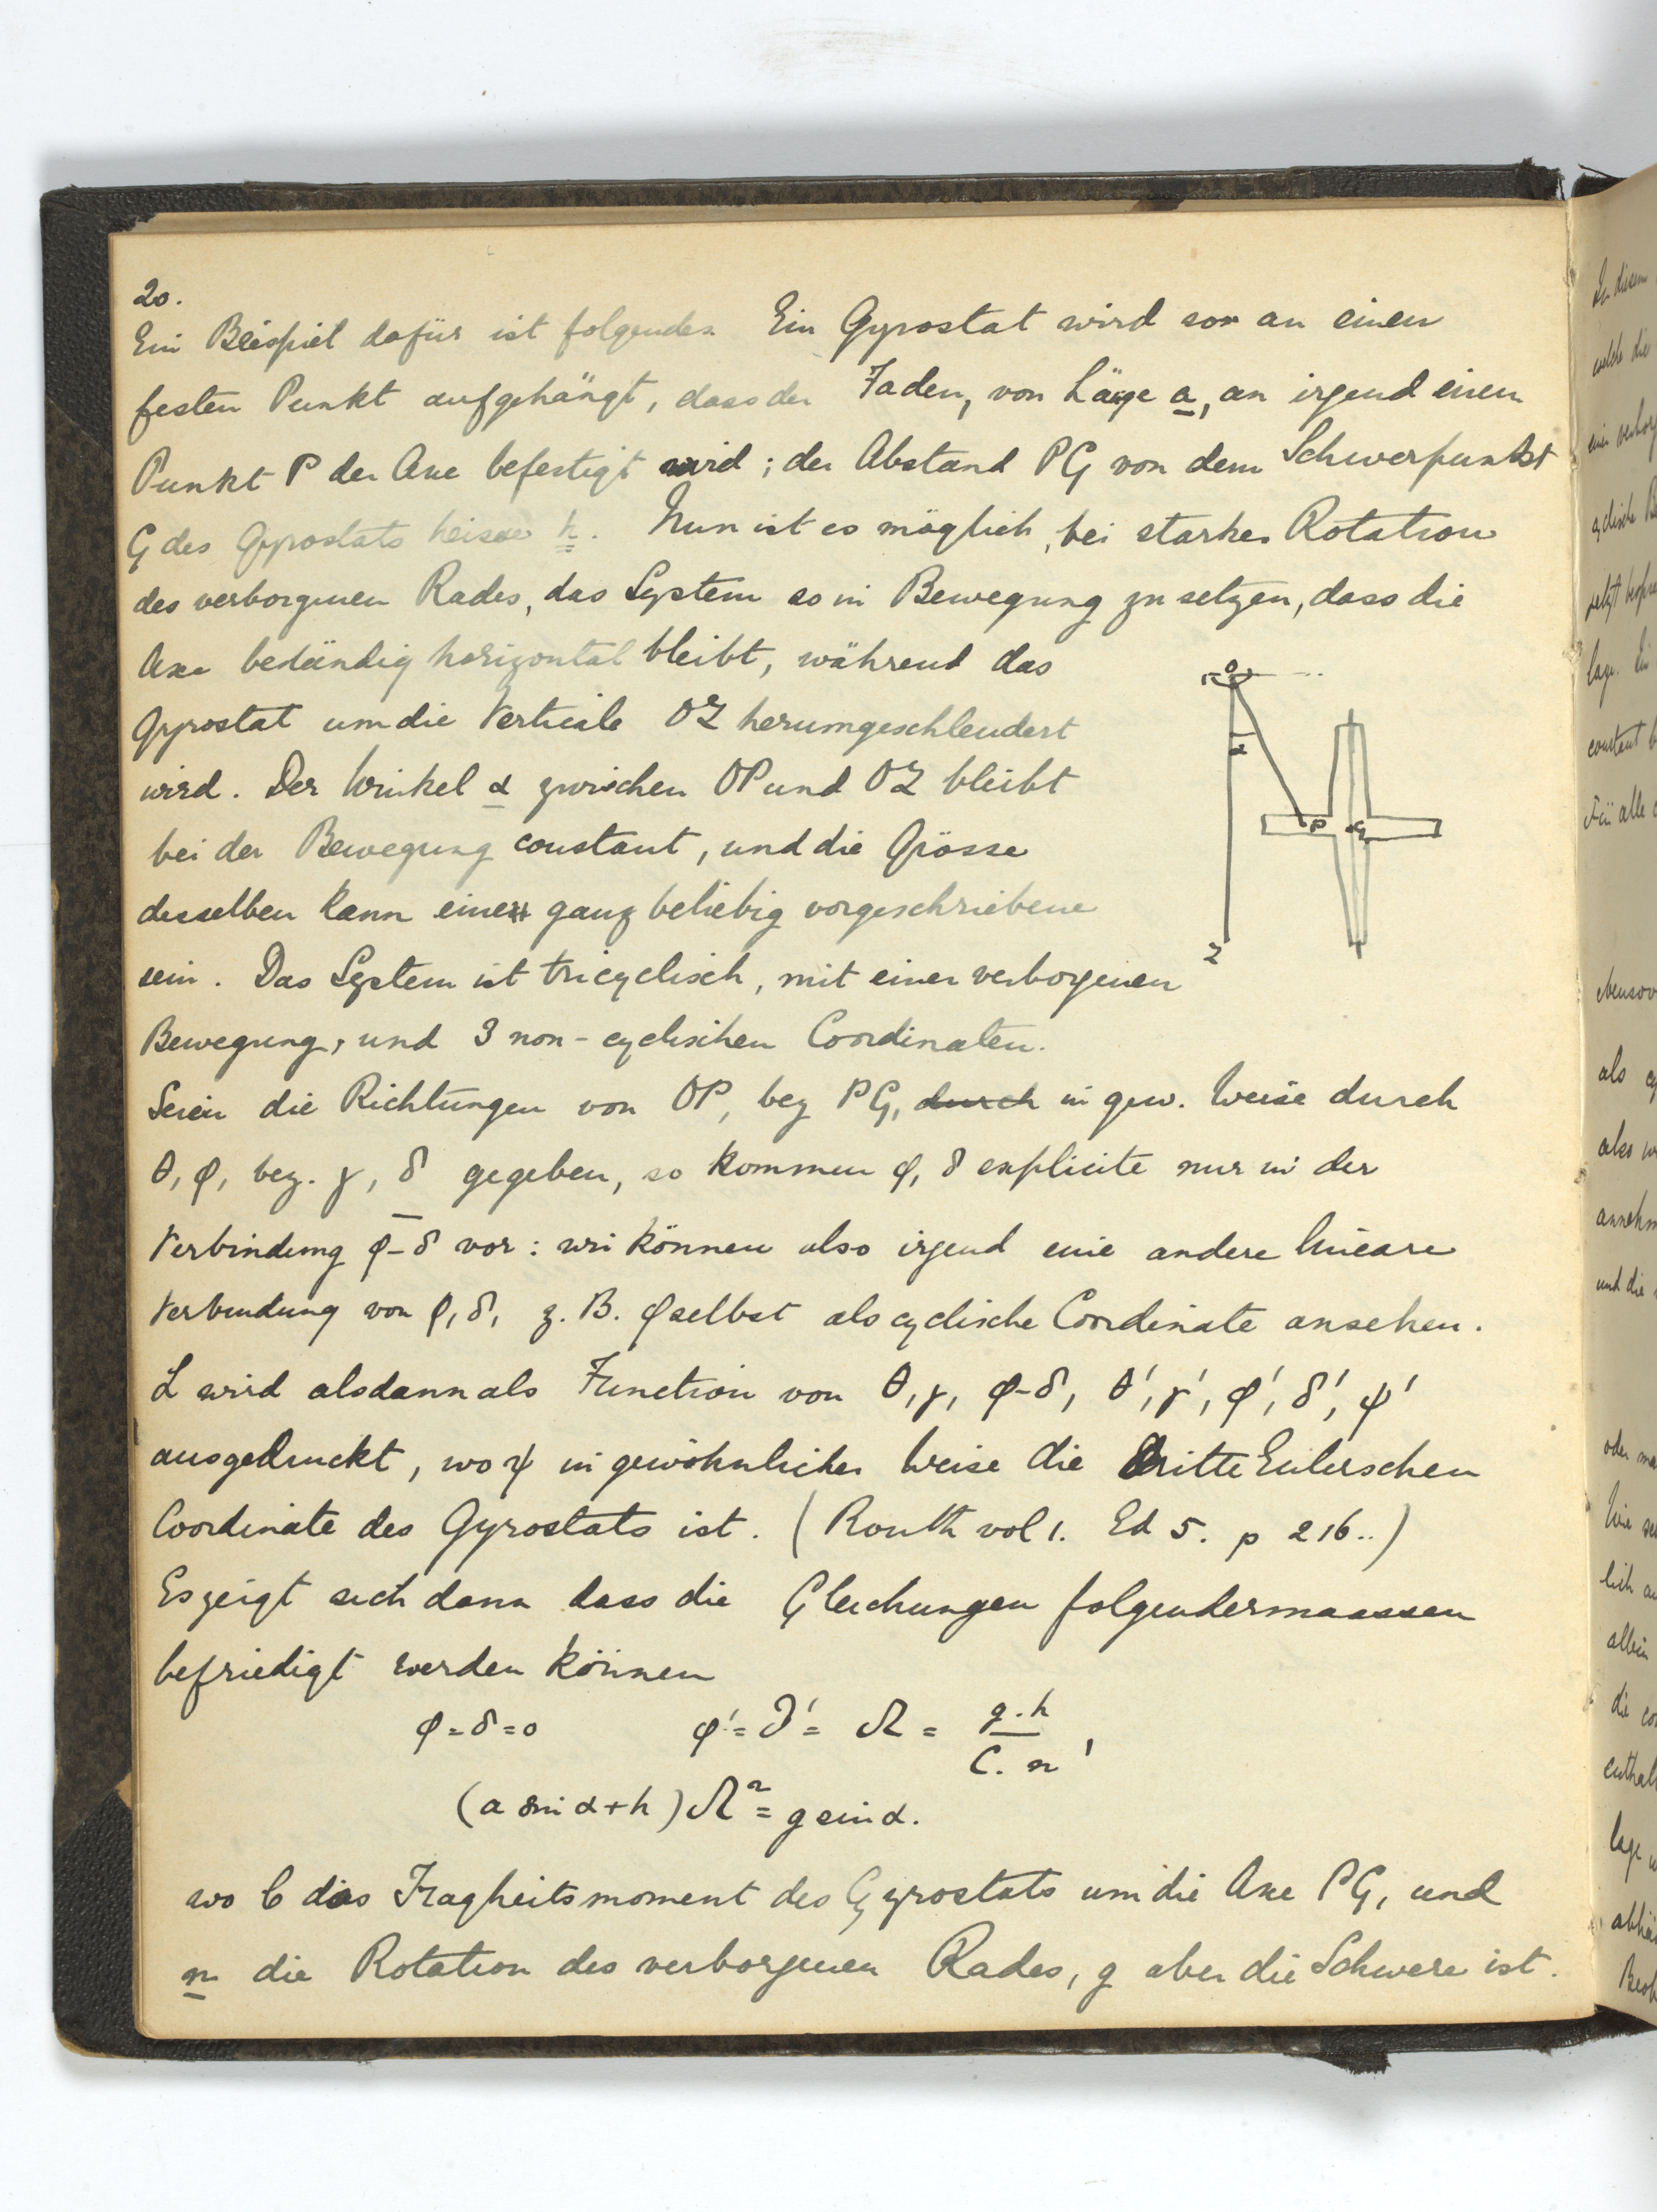 20.
Ein Beispiel dafür ist folgendes. Ein Gyrostat wird so an einen
festen Punkt aufgehängt, dass der Faden, von Läge a, an irgend einen
Punkt P der Axe befestigt wird; der Abstand PG von dem Schwerpunkt
G des Gyrostats heisse h. Nun ist es möglich, bei starker Rotation
des verborgenen Rades, das System so in Bewegung zu setzen, dass die
Axe beständig horizontal bleibt, während das
Gyrostat um die Verticale OZ herumgeschleudert
wird. Der Winkel α zwischen OP und OZ bleibt
bei der Bewegung constant, und die Grösse
desselben kann eine ganz beliebig vorgeschriebene
sein. Das System ist tricyclisch, mit einer verborgenen
Bewegung, und 3 non-cyclischen Coordinaten.
Seien die Richtungen von OP, bez PG, durch in gew. Weise durch
θ, φ, bez. γ, δ gegeben, so kommen φ, δ explicite nur in der
Verbindung φ-δ vor: wir können also irgend eine andere lineare
Verbindung von φ, δ, z. B. φ selbst als cyclische Coordinate ansehen.
L wird alsdann als Function von θ, γ, φ-δ, θ', γ', φ', δ', ψ'
ausgedruckt, wo ψ in gewöhnlicher Weise die dritte Eulerschen
Coordinate des Gyrostats ist. (Routh vol 1. Ed 5. p 216..)
Es zeigt sich dann dass die Gleichungen folgendermaassen
befriedigt werden können
φ = δ = 0 φ' = δ' = Ω = g.h / C.n ,
(a sin α + h) Ω² = g sin α.
wo C das Tragheitsmoment des Gyrostats um die Axe PG, und
n die Rotation des verborgenen Rades, g aber die Schwere ist.
O
α
P G
Z